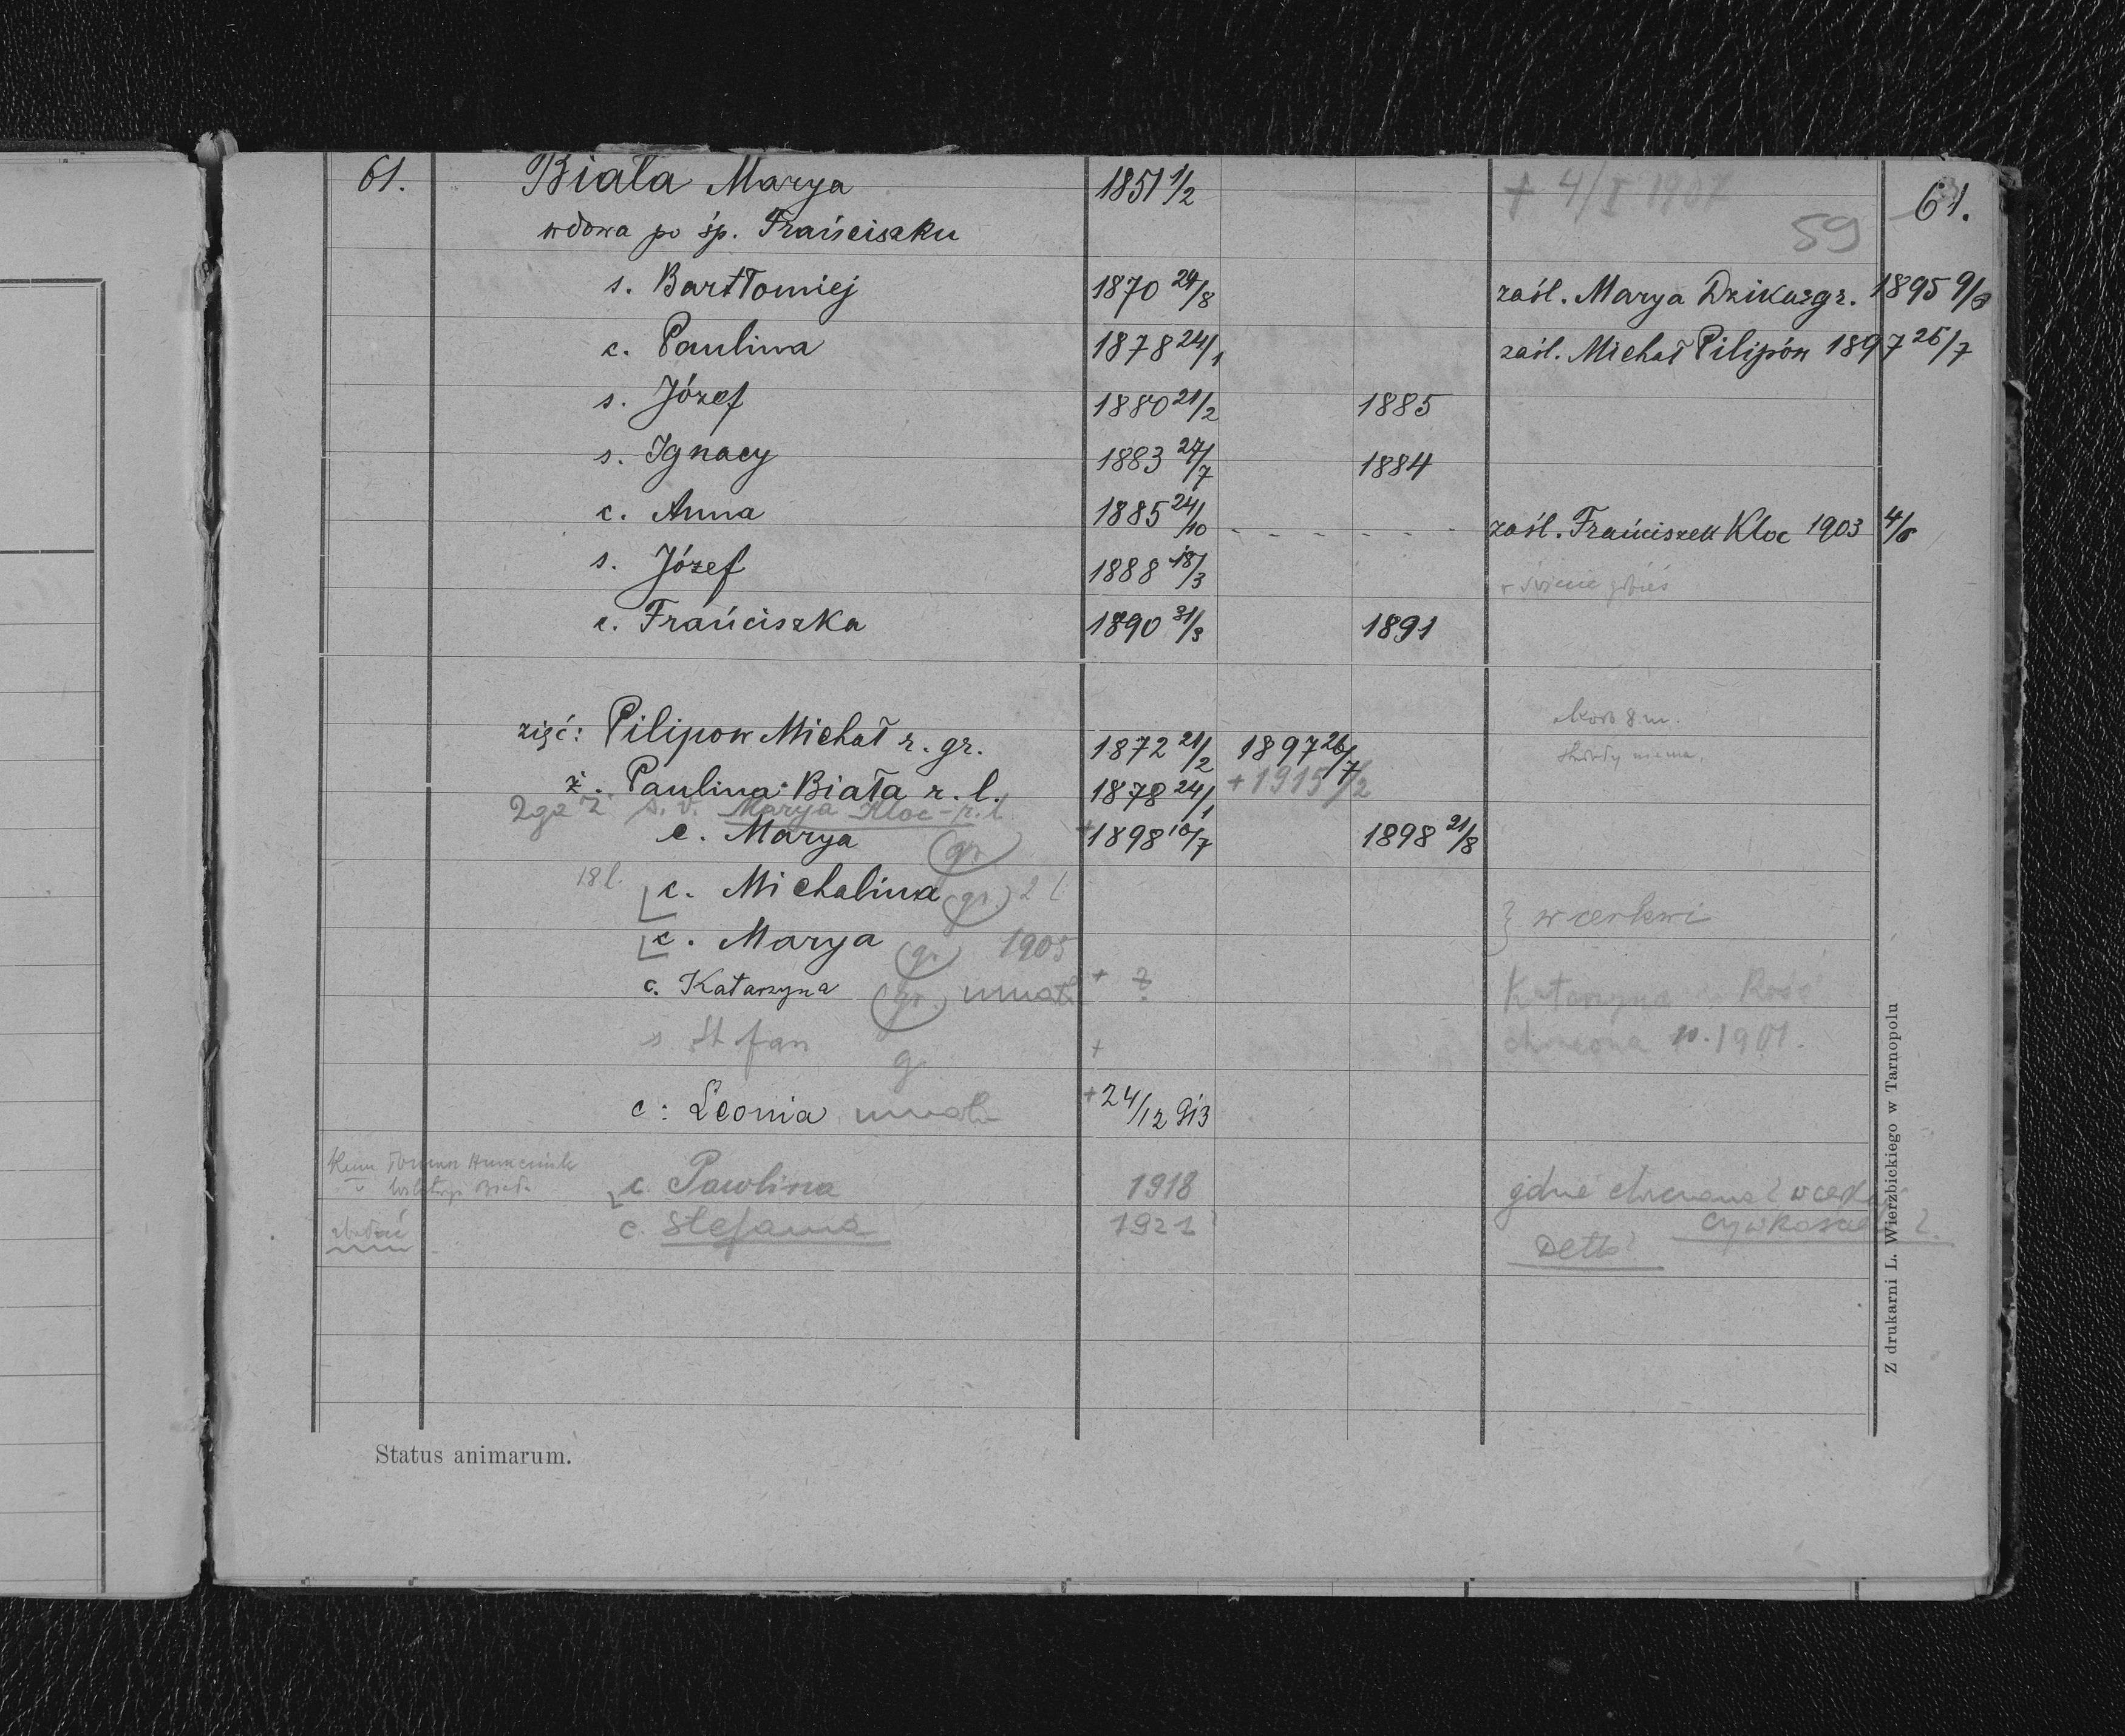 61. Biała Marya 1851 1/2 + 4/I 1907 61.
wdowa po śp. Frańciszku 59
s. Bartłomiej 1870 24/8 zaśl. Marya Dzikuzgr. 1895 9/
c. Paulina 1878 24/1 zaśl. Michał Pilipów 1897 26/7
s. Józef 1880 21/2 1885
s. Ignacy 1883 27/7 1884
c. Anna 1885 24/10 - - - - - - zaśl. Frańciszek Kloc 1903 4/
s. Józef 1888 18/3
c. Frańciszka 1890 31/3 1891
8 m.
zięć: Pilipow Michał r. gr. 1872 21/2 1897 26/7 niema.
ż. Paulina Biała r. l. 1878 24/1 + 1915 /2
2ga ż s. v. Marya Kloc - r. l.
c. Marya (gr) + 1898 10/7 1898 21/8
18 l. c. Michalina (gr.) 2 l
} w cerkwi
c. Marya (gr) 1905
c. Katarzyna (gr.) umarła + ? Katarzyna
s. Stefan g + 1901.
c: Leonia umarła + 24/12 913
c. Pawlina 1918
c. Stefania 1921
Detto?
Status animarum.
Z drukarni L. Wierzbickiego w Tarnopolu